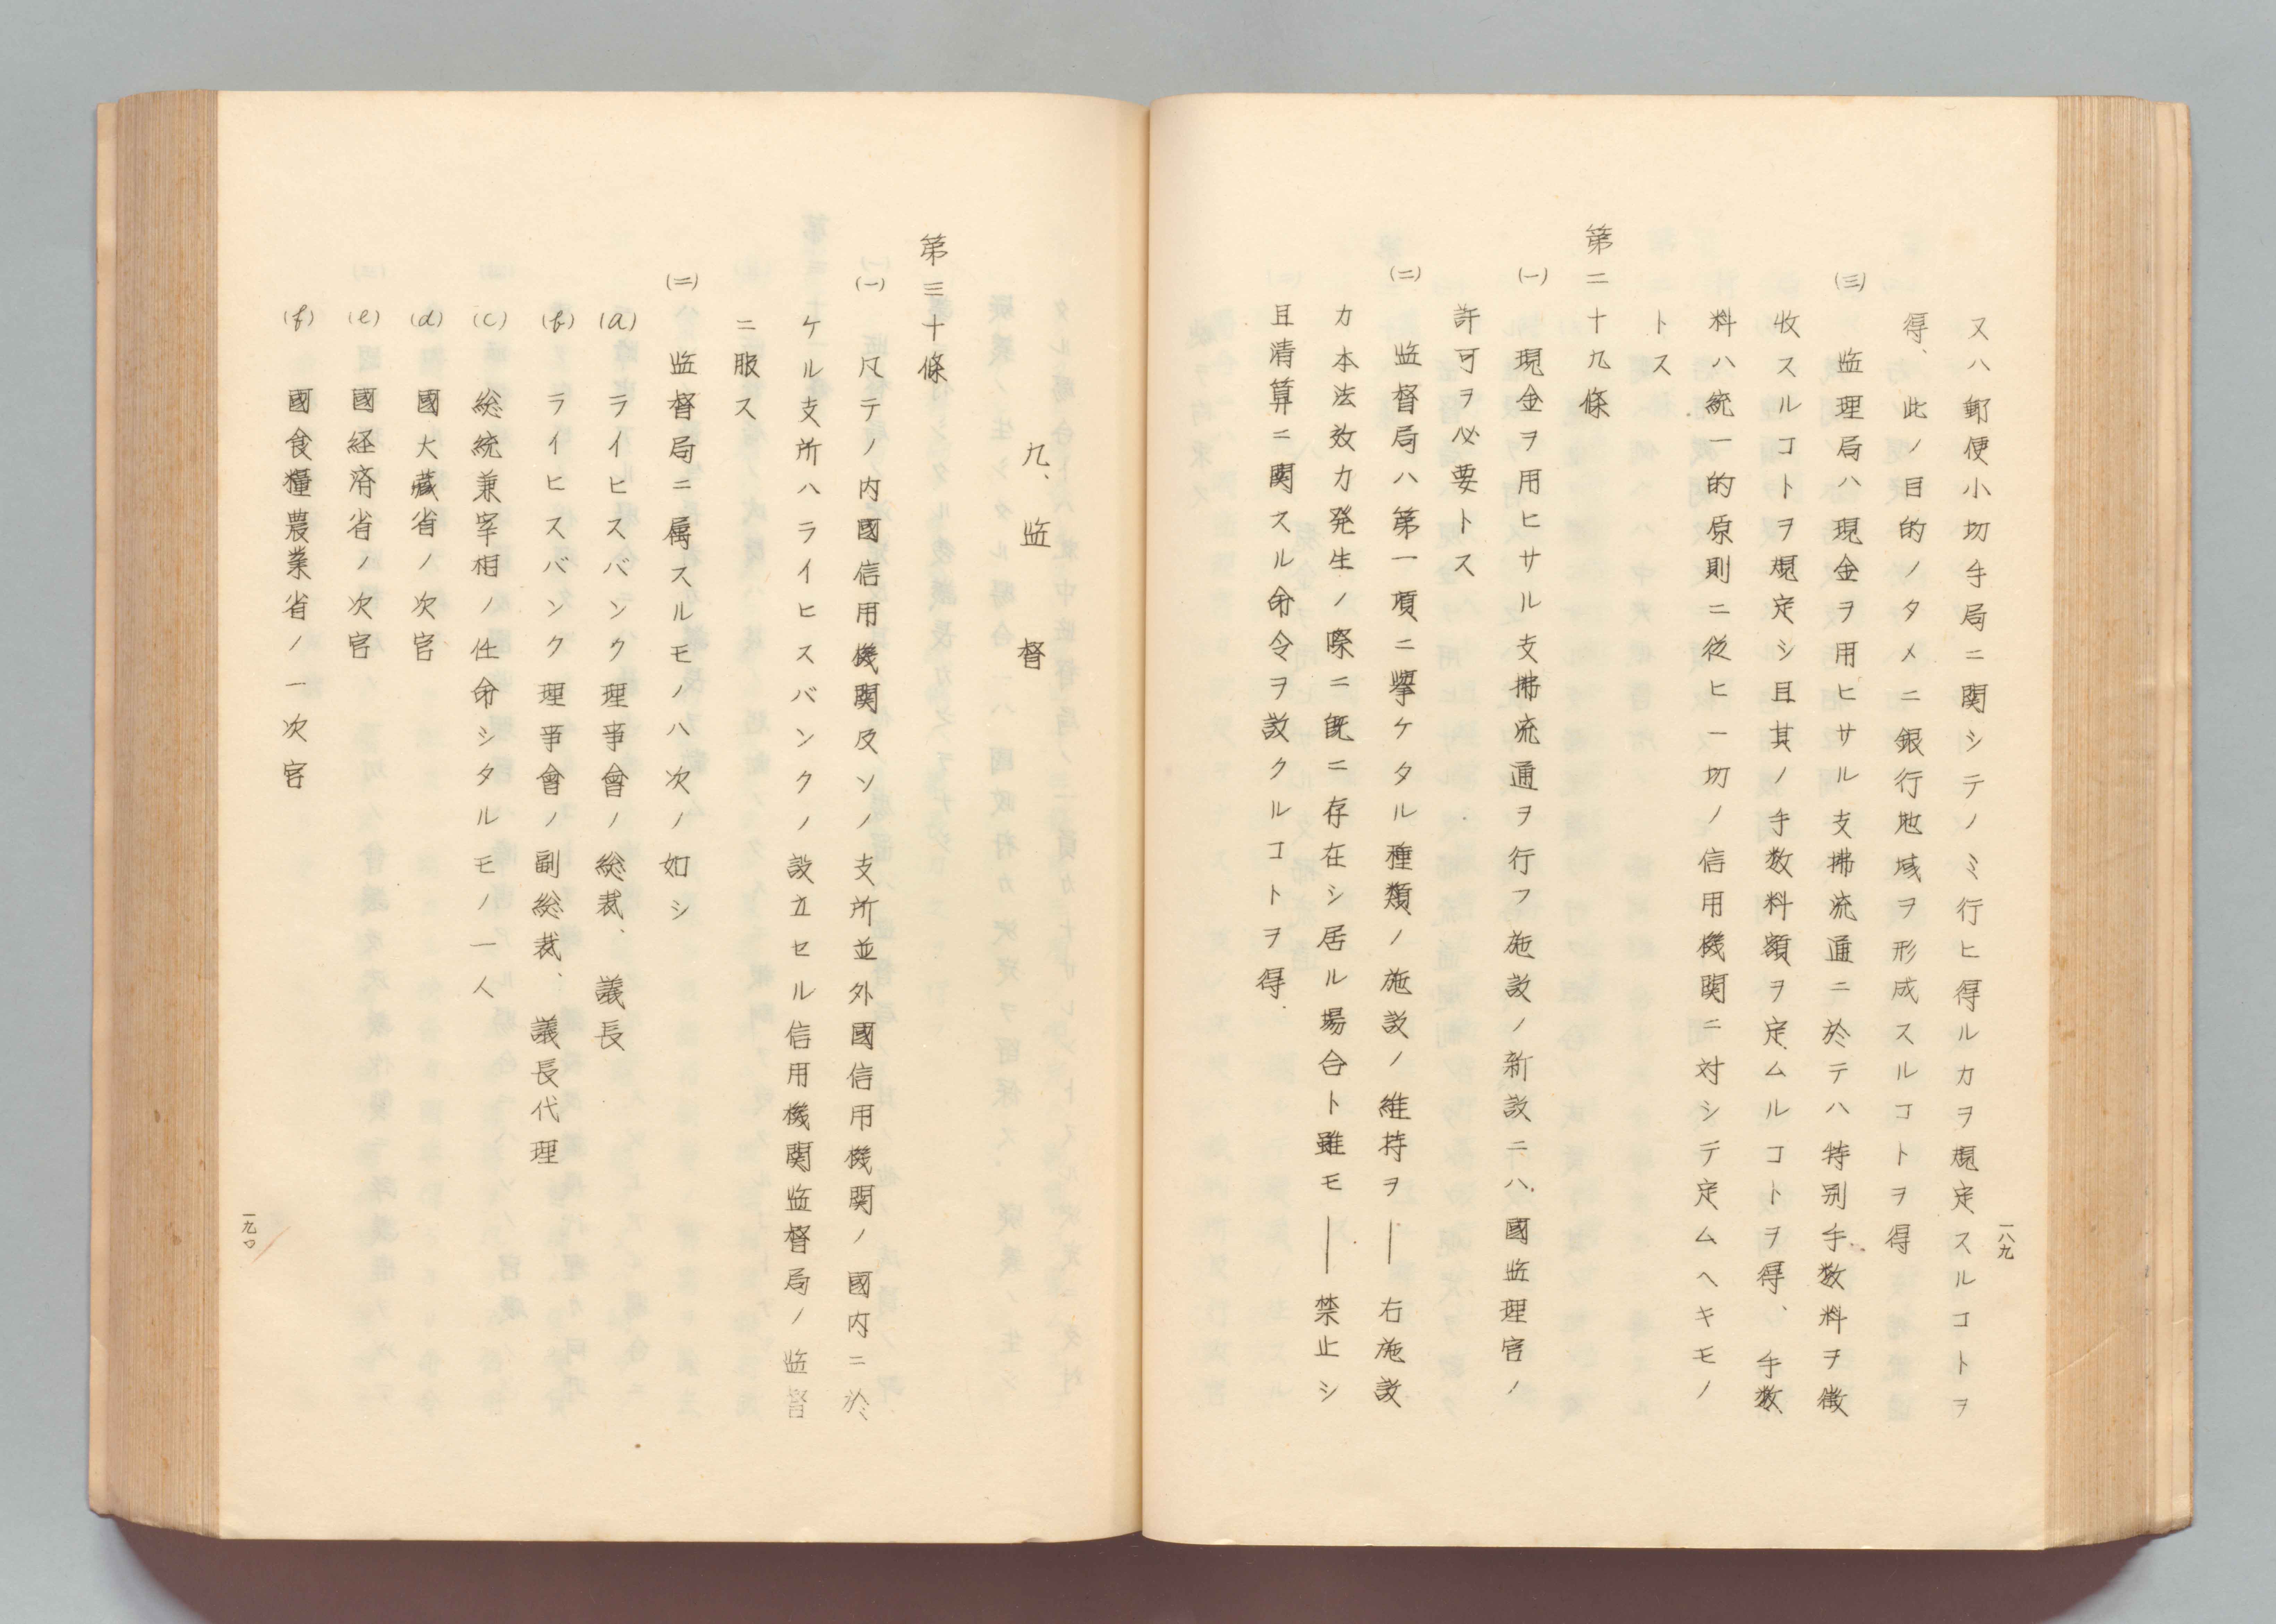 一八九
又ハ郵便小切手局ニ関シテノミ行ヒ得ルカヲ規定スルコトヲ
得、此ノ目的ノタメニ銀行地域ヲ形成スルコトヲ得
(三) 監理局ハ現金ヲ用ヒサル支拂流通ニ於テハ特別手数料ヲ徴
收スルコトヲ規定シ且其ノ手数料額ヲ定ムルコトヲ得、手数
料ハ統一的原則ニ從ヒ一切ノ信用機関ニ対シテ定ムヘキモノ
トス
第二十九條
(一) 現金ヲ用ヒサル支拂流通ヲ行フ施設ノ新設ニハ國監理官ノ
許可ヲ必要トス
(二) 監督局ハ第一項ニ擧ケタル種類ノ施設ノ維持ヲ―右施設
カ本法效力発生ノ際ニ既ニ存在シ居ル場合ト雖モ―禁止シ
且清算ニ関スル命令ヲ設クルコトヲ得.
九、監督
第三十條
(一) 凡テノ内國信用機関及ソノ支所並外國信用機関ノ國内ニ於
ケル支所ハライヒスバンクノ設立セル信用機関監督局ノ監督
ニ服ス
(二) 監督局ニ属スルモノハ次ノ如シ
(a) ライヒスバンク理事會ノ総裁、議長
(b) ライヒスバンク理事會ノ副総裁、議長代理
(c) 総統兼宰相ノ任命シタルモノ一人
(d) 國大藏省ノ次官
(e) 國経済省ノ次官
(f) 國食糧農業省ノ一次官
一九〇